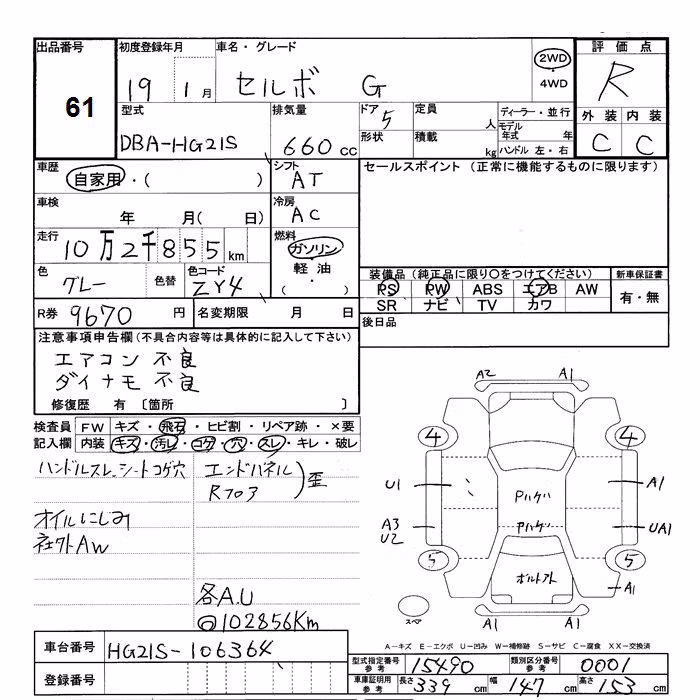 出品番号 初度登録年月 車名・グレード 評価点
61 19 1月 セルボ G 2WD・4WD R
型式 排気量 ドア 5 定員 人 ディーラー・並行 外装 内装
DBA-HG21S 660cc 形状 積載 kg モデル年式 年 ハンドル 左・右 C C
車歴 シフト セールスポイント (正常に機能するものに限ります)
自家用・( ) AT
車検 年 月( 日) 冷房 AC
走行 10万2千855km 燃料 ガソリン・軽油・( )
色 グレー 色替 色コード ZY4
装備品(純正品に限り○をつけてください) 新車保証書
PS PW ABS エアB AW 有・無
SR ナビ TV カワ
R券 9670 円 名変期限 月 日 後日品
注意事項申告欄(不具合内容等は具体的に記入して下さい)
エアコン 不良
ダイナモ 不良
修復歴 有〔箇所 〕
検査員記入欄 FW キズ・飛石・ヒビ割・リペア跡・×要
内装 キズ・汚レ・コゲ・穴・スレ・キレ・破レ
ハンドルスレ、シートコゲ穴 エンドパネル
Rフロア )歪
オイルにじみ
社外AW
各A.U
102856Km
A2 A1
4 4
U1 A1
Pハゲ
A3 U2 Pハゲ UA1
5 5
ボルト外 A1
スペア A1 A1
A-キズ E-エクボ U-凹み W-補修跡 S-サビ C-腐食 XX-交換済
車台番号 HG21S-106364
登録番号
型式指定番号 参考 15490 類別区分番号 参考 0001
車庫証明用 参考 長さ 339 cm 幅 147 cm 高さ 153 cm